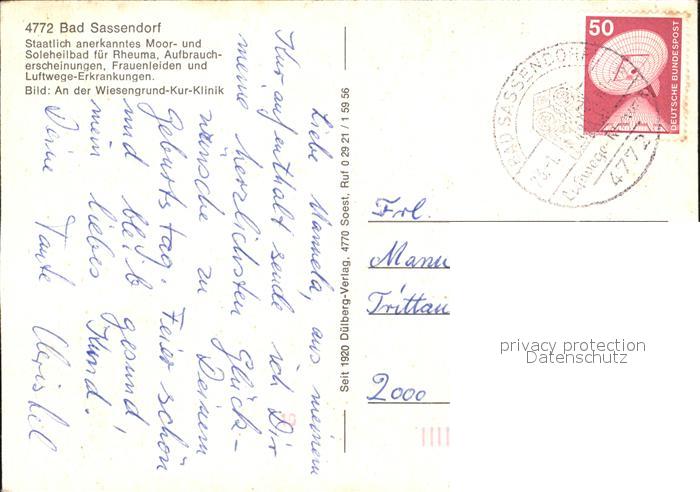 4772 Bad Sassendorf
Staatlich anerkanntes Moor- und
Soleheilbad für Rheuma, Aufbrauch-
erscheinungen, Frauenleiden und
Luftwege-Erkrankungen.
Bild: An der Wiesengrund-Kur-Klinik
Liebe Manuela, aus meinem
Kuraufenthalt sende ich Dir
meine herzlichsten Glück-
wünsche zu Deinem
Geburtstag. Feier schön
und bleib gesund,
mein liebes Kind!
Deine Tante Christel
Seit 1920 Dülberg-Verlag, 4770 Soest, Ruf 0 29 21 / 1 59 56
50
DEUTSCHE BUNDESPOST
BAD SASSENDORF
4772
Frl.
Manu
Trittau
2000
privacy protection
Datenschutz